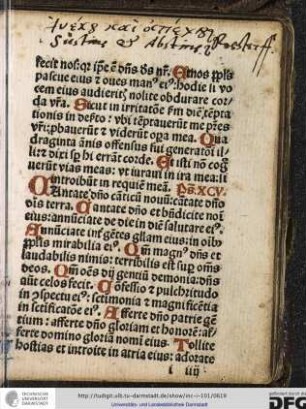 ἀνέχου καὶ ἀπέχου
Sustine & Abstine
fecit nosq; ip̄e ē dn̄s ds nr̄. Et nos pp̄ls
pascue eius & oues man⁹ ei⁹: hodie si vo
cem eius audierit⁠, nolite obdurare cor/
da vr̄a. Sicut in irritatōe km̄ diē tēpta
tionis in deserto: vbi tēptauerūt me patres
vr̄i: ꝓbauerūt & viderūt oꝑa mea. Qua
draginta ānis offensus fui generatōi il
li: & dixi sp̄ hi errāt corde. Et isti nō cog
uerūt vias meas: vt iuraui in ira mea: si
introibūt in requiē meā. Ps. XCV.
Cantate dn̄o cāticū nouū: cātate dn̄o
oīs terra. Cantate dn̄o et bn̄dicite noī
eius: annūciate de die in diē salutare ei⁹.
Annūciate int̄ gētes gliam eius: in oīb⁹
pp̄lis mirabilia ei⁹. Qm̄ magn⁹ dn̄s et
laudabilis nimis: terribilis est sup̄ om̄s
deos. Qm̄ oēs dij gentiū demonia: dn̄s
aūt celos fecit. Cōfessio & pulchritudo
in ɔspectu ei⁹: sctimonia & magnificētia
in sctificatōe ei⁹. Afferte dn̄o patrie gē
tium: afferte dn̄o gloriam et honorē: af
ferte domino gloriā nomī eius. Tollite
hostias et introite in atria eius: adorate
l iiij
TECHNISCHE
UNIVERSITÄT
DARMSTADT
http://tudigit.ulb.tu-darmstadt.de/show/inc-i-101/0619
Universitäts- und Landesbibliothek Darmstadt
gefördert durch die
DFG